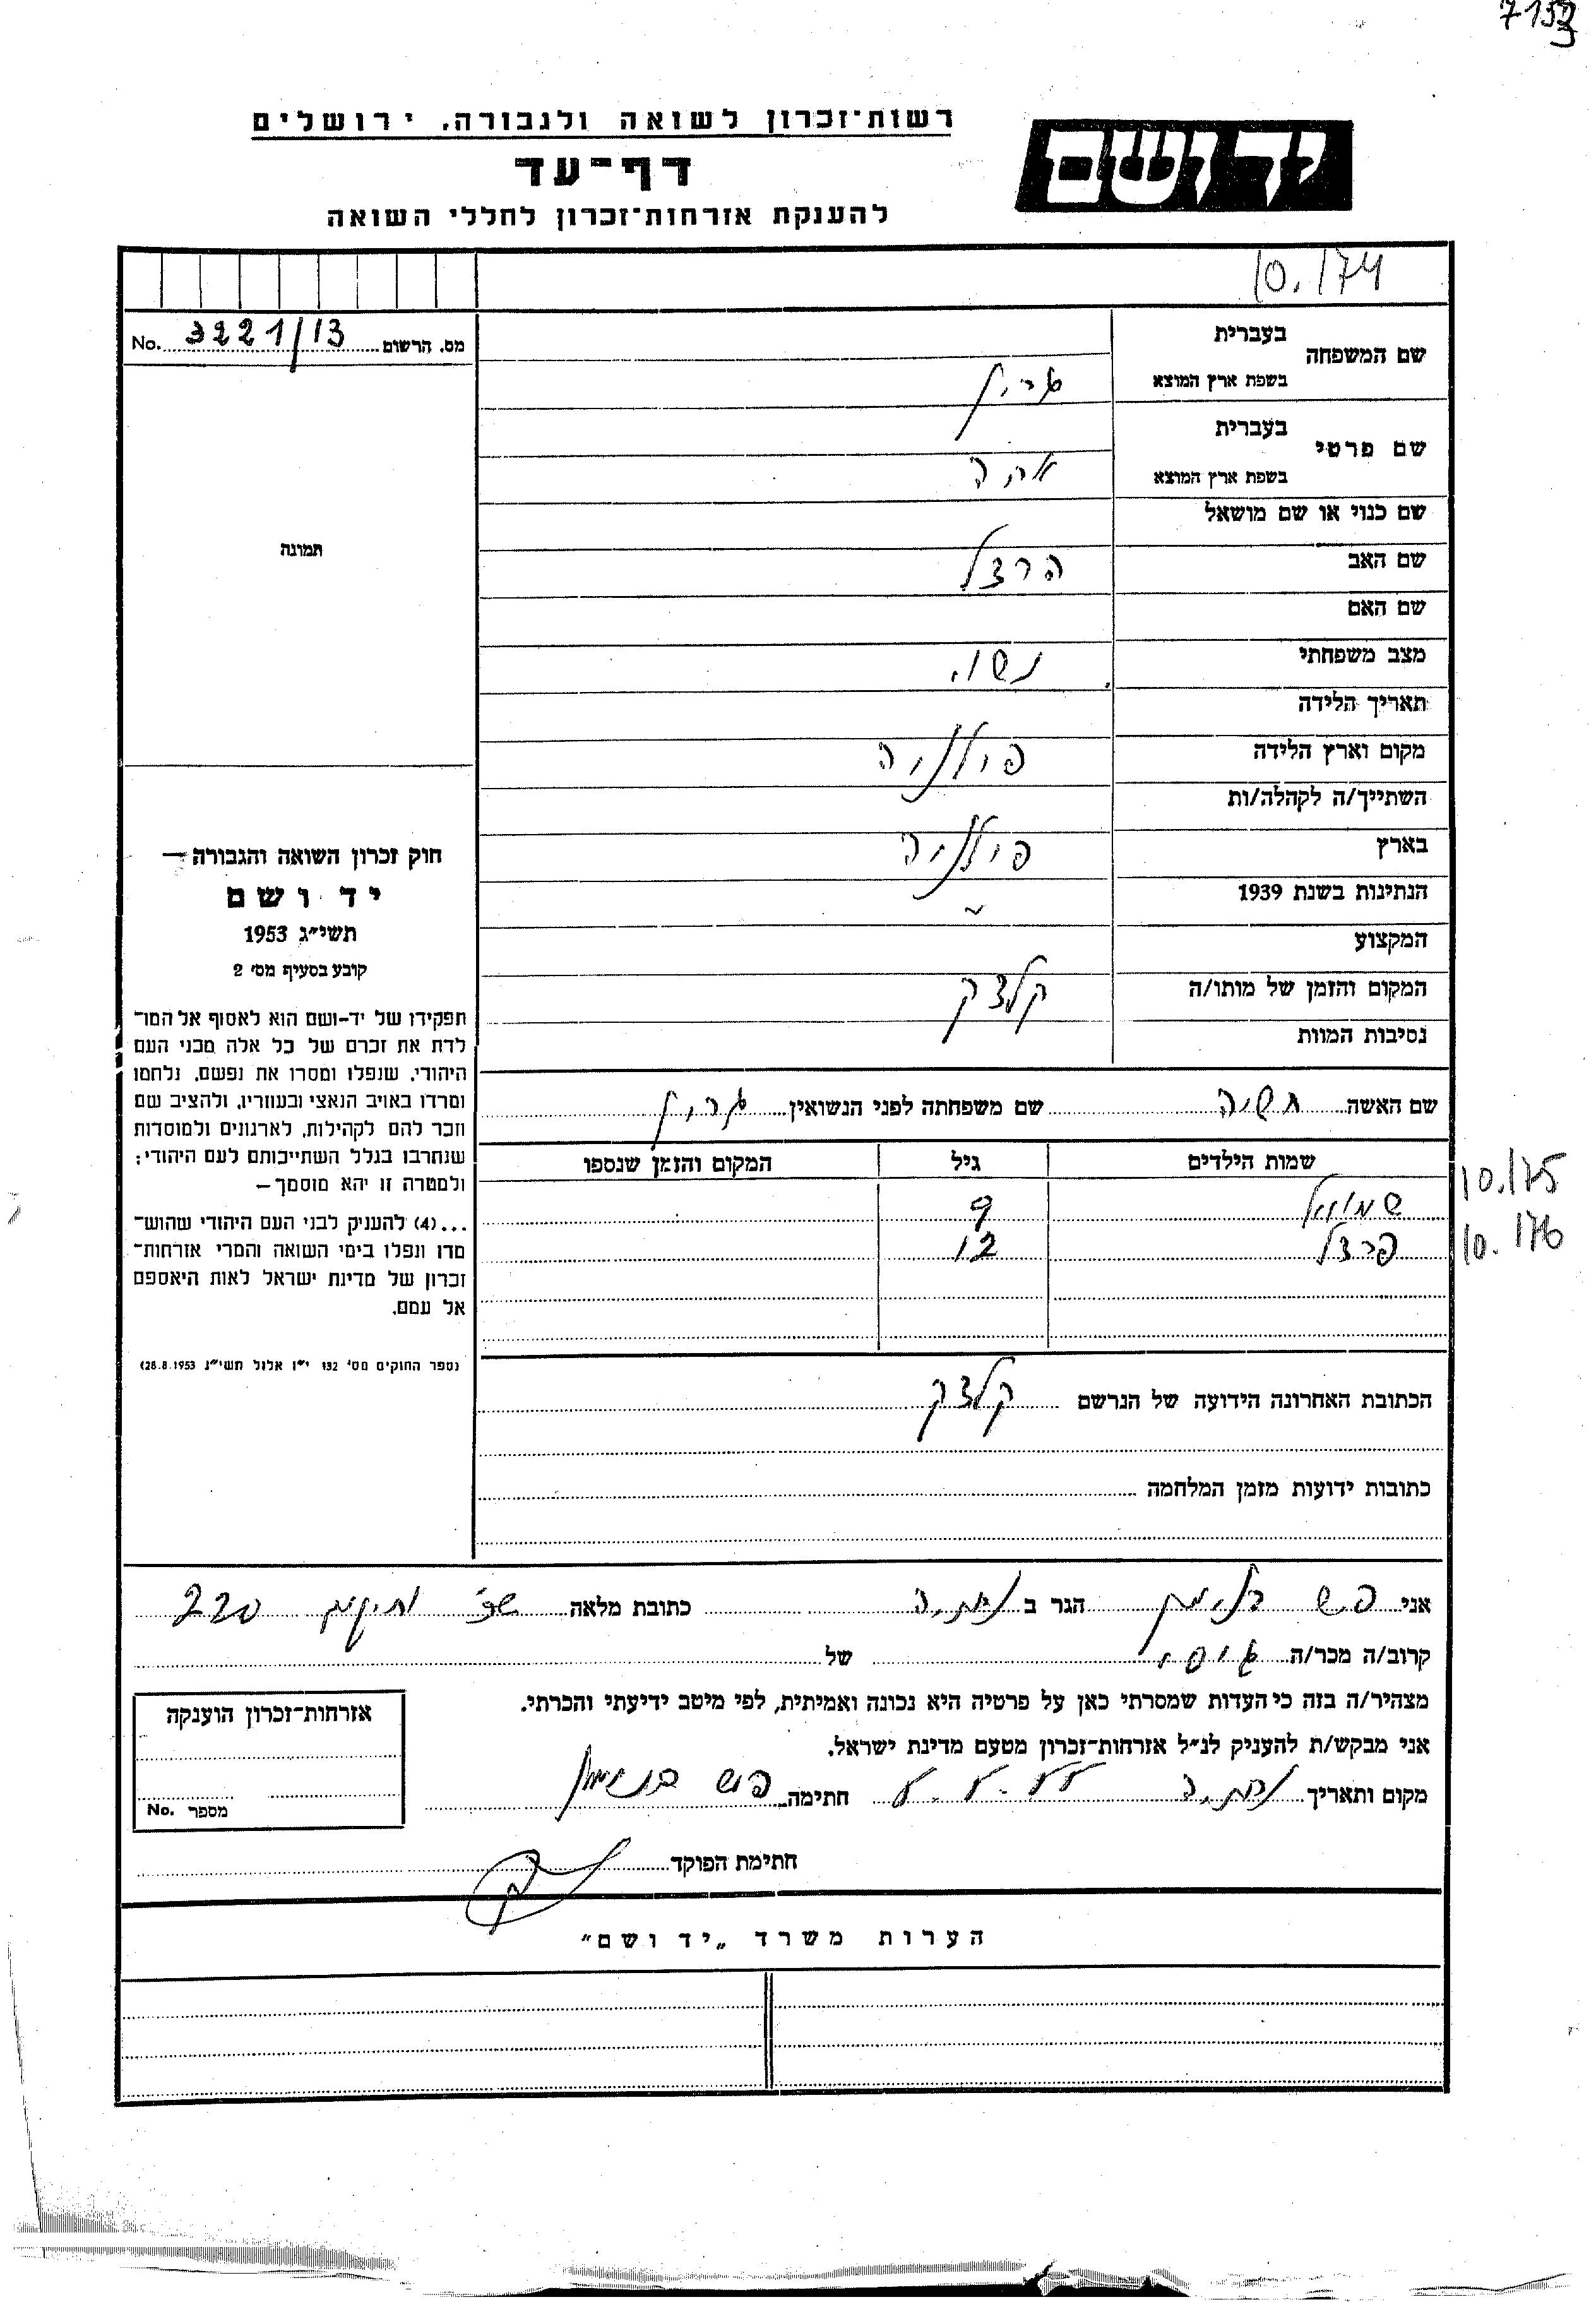 7153
רשות־זכרון לשואה ולגבורה, ירושלים
יד ושם
דף־עד
להענקת אזרחות־זכרון לחללי השואה
10.174
מס. הרשום 3221/13 No.
שם המשפחה
בעברית
בשפת ארץ המוצא
שם פרטי
בעברית
בשפת ארץ המוצא
שם כנוי או שם מושאל
שם האב הרצל
שם האם
מצב משפחתי נשוי
תאריך הלידה
מקום וארץ הלידה פולניה
השתייך/ה לקהלה/ות
בארץ פולניה
הנתינות בשנת 1939 ~
המקצוע
המקום והזמן של מותו/ה קלצק
נסיבות המוות
תמונה
חוק זכרון השואה והגבורה —
יד ושם
תשי״ג 1953
קובע בסעיף מס׳ 2
תפקידו של יד-ושם הוא לאסוף אל המו־
לדת את זכרם של כל אלה מבני העם
היהודי, שנפלו ומסרו את נפשם, נלחמו
ומרדו באויב הנאצי ובעוזריו, ולהציב שם
וזכר להם לקהילות, לארגונים ולמוסדות
שנחרבו בגלל השתייכותם לעם היהודי:
ולמטרה זו יהא מוסמך—
...(4) להעניק לבני העם היהודי שהוש־
מדו ונפלו בימי השואה והמרי אזרחות־
זכרון של מדינת ישראל לאות היאספם
אל עמם.
(ספר החוקים מס׳ 132 י״ז אלול תשי״ג 28.8.1953)
שם האשה שם משפחתה לפני הנשואין
שמות הילדים גיל המקום והזמן שנספו
שמואל 9 10.175
פרצל 12 10.176
הכתובת האחרונה הידועה של הנרשם קלצק
כתובות ידועות מזמן המלחמה
אני הגר ב נתניה כתובת מלאה 220
קרוב/ה מכר/ה של
מצהיר/ה בזה כי העדות שמסרתי כאן על פרטיה היא נכונה ואמיתית, לפי מיטב ידיעתי והכרתי.
אני מבקש/ת להעניק לנ״ל אזרחות־זכרון מטעם מדינת ישראל.
מקום ותאריך נתניה חתימה
חתימת הפוקד
אזרחות־זכרון הוענקה
מספר No.
הערות משרד „יד ושם״